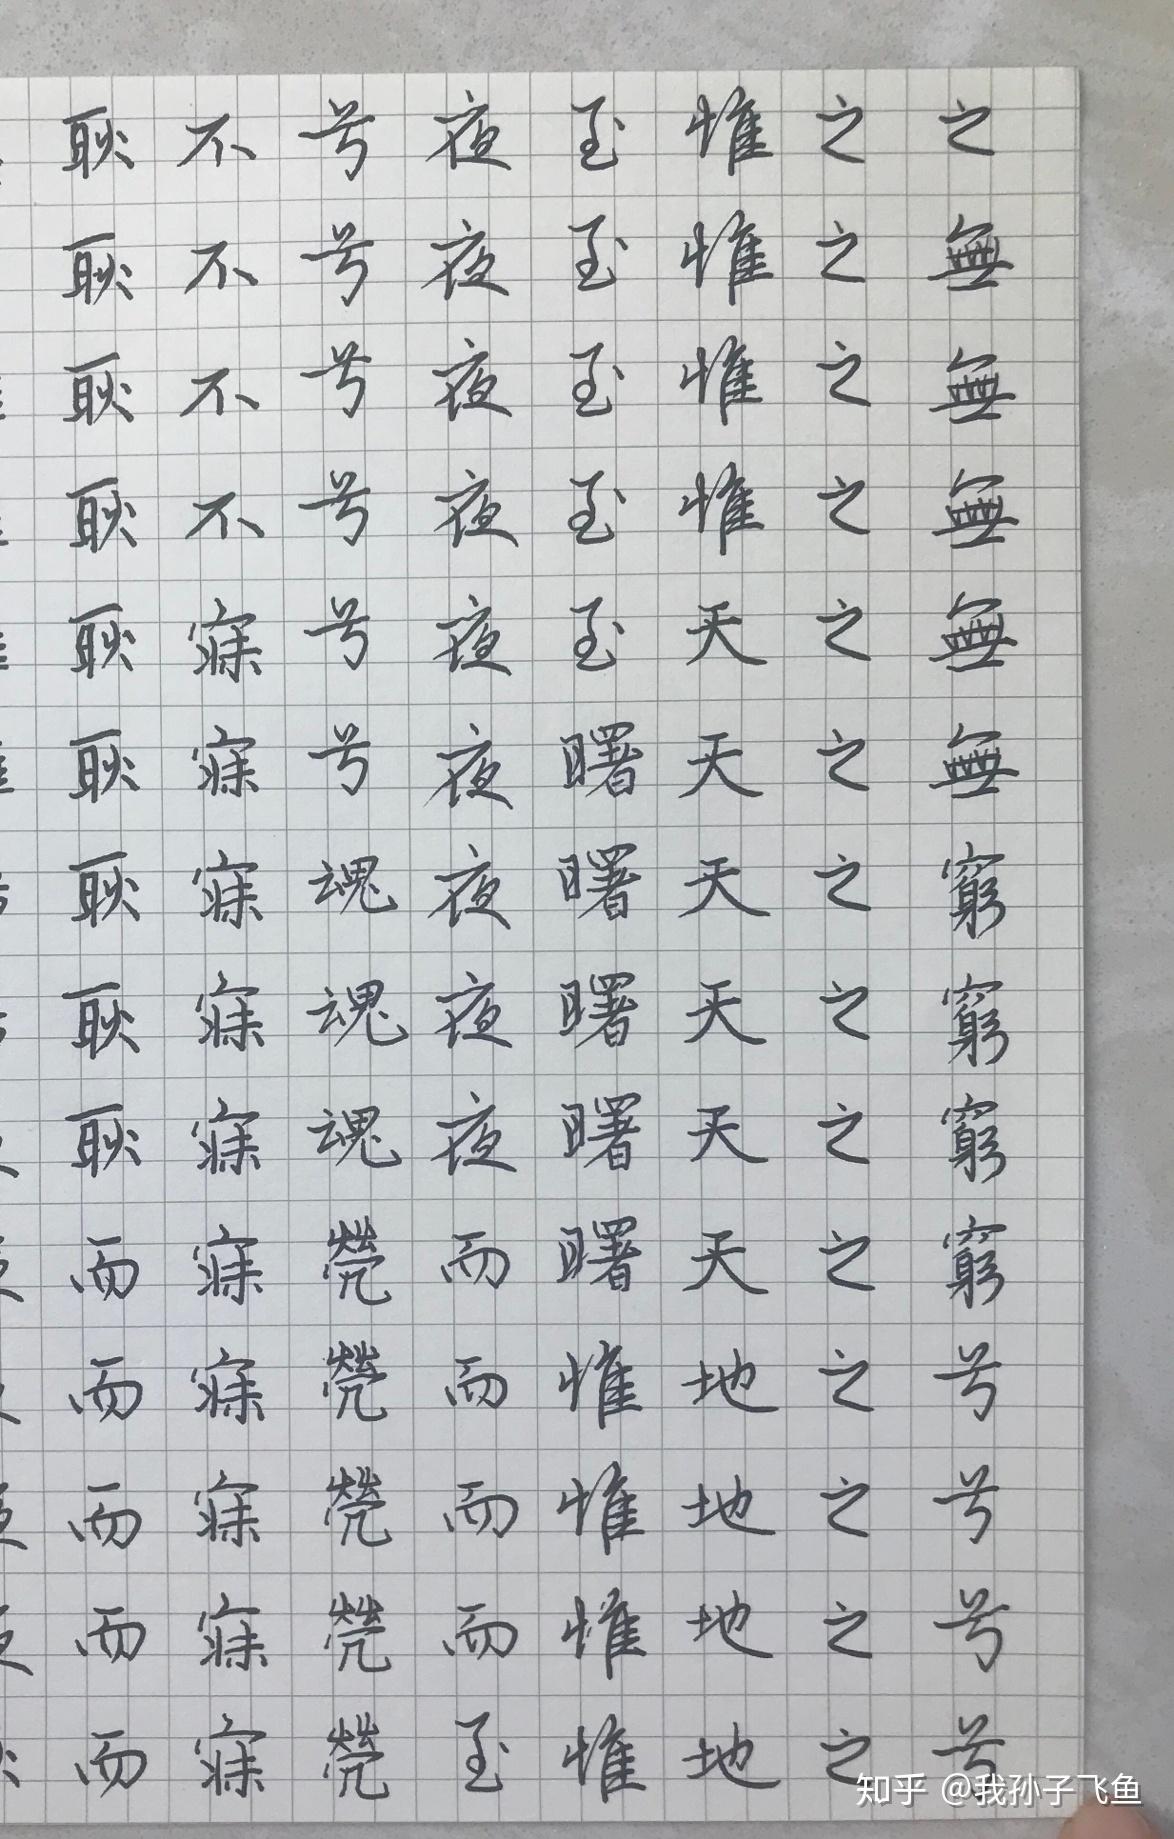 之無無無無無窮窮窮窮兮兮兮兮
之之之之之之之之之之之之之之
惟惟惟惟天天天天天天地地地地
至至至至至曙曙曙曙曙惟惟惟惟
夜夜夜夜夜夜夜夜夜而而而而至
兮兮兮兮兮兮魂魂魂煢煢煢煢煢
不不不不寐寐寐寐寐寐寐寐寐寐
耿耿耿耿耿耿耿耿耿而而而而而
知乎 @我孙子飞鱼